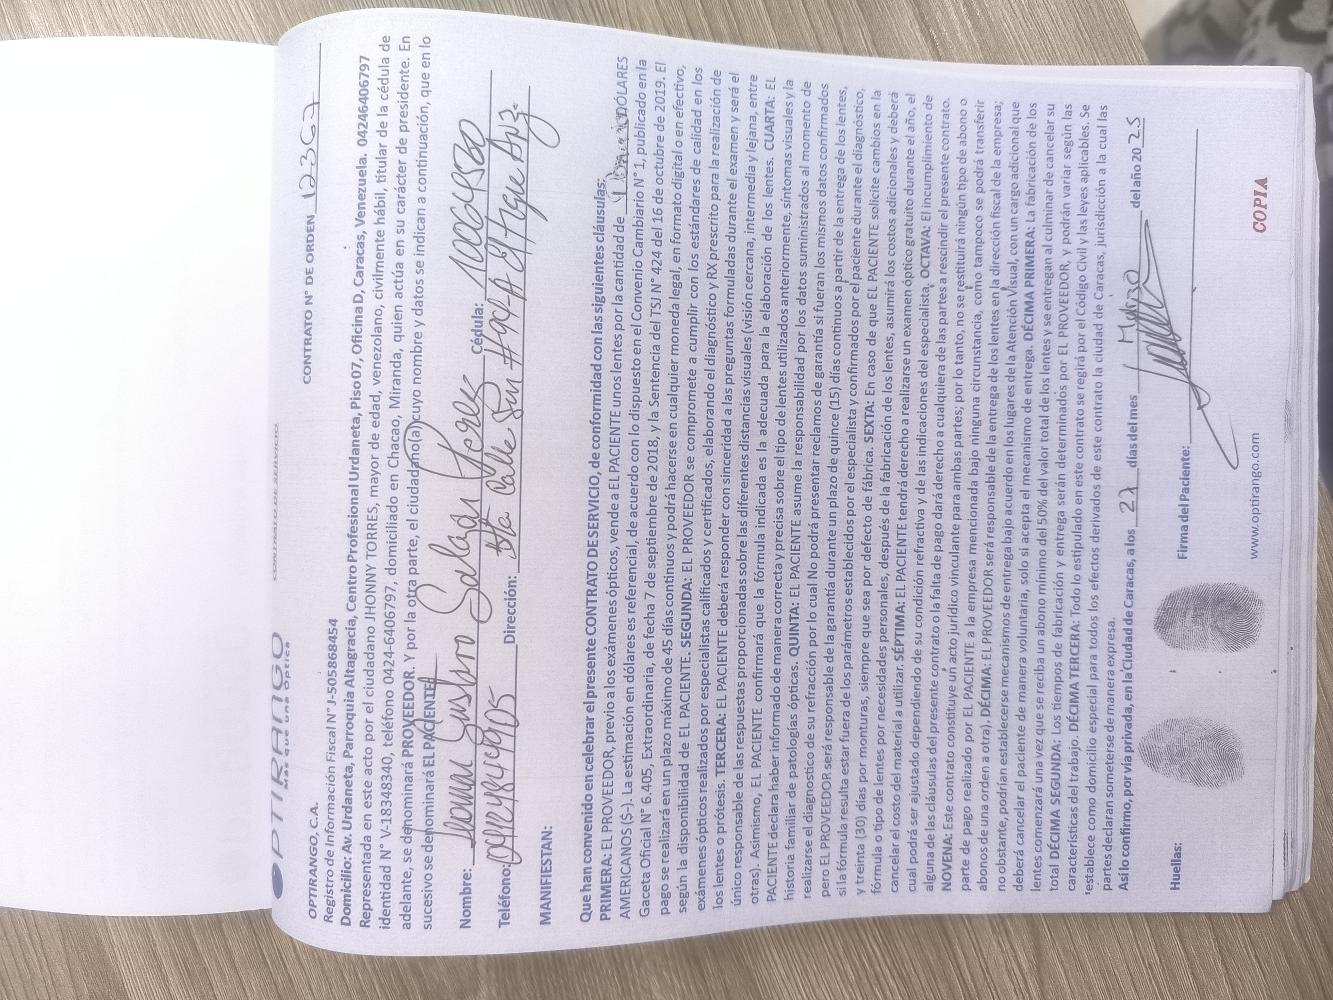 OPTIRANGO
MÁS que una Óptica
CONTRATO DE SERVICIO
CONTRATO N° DE ORDEN 12367
OPTIRANGO, C.A.
Registro de Información Fiscal N° J-505868454
Domicilio: Av. Urdaneta, Parroquia Altagracia, Centro Profesional Urdaneta, Piso 07, Oficina D, Caracas, Venezuela. 04246406797
Representada en este acto por el ciudadano JHONNY TORRES, mayor de edad, venezolano, civilmente hábil, titular de la cédula de
identidad N° V-18348340, teléfono 0424-6406797, domiciliado en Chacao, Miranda, quien actúa en su carácter de presidente. En
adelante, se denominará PROVEEDOR. Y por la otra parte, el ciudadano(a) cuyo nombre y datos se indican a continuación, que en lo
sucesivo se denominará EL PACIENTE
Nombre: Gustavo Salazar Cédula:
Teléfono: Dirección: Calle El Tigre
MANIFIESTAN:
Que han convenido en celebrar el presente CONTRATO DE SERVICIO, de conformidad con las siguientes cláusulas:
PRIMERA: EL PROVEEDOR, previo a los exámenes ópticos, vende a EL PACIENTE unos lentes por la cantidad de DÓLARES
AMERICANOS ($-). La estimación en dólares es referencial, de acuerdo con lo dispuesto en el Convenio Cambiario N° 1, publicado en la
Gaceta Oficial N° 6.405, Extraordinaria, de fecha 7 de septiembre de 2018, y la Sentencia del TSJ N° 424 del 16 de octubre de 2019. El
pago se realizará en un plazo máximo de 45 días continuos y podrá hacerse en cualquier moneda legal, en formato digital o en efectivo,
según la disponibilidad de EL PACIENTE. SEGUNDA: EL PROVEEDOR se compromete a cumplir con los estándares de calidad en los
exámenes ópticos realizados por especialistas calificados y certificados, elaborando el diagnóstico y RX prescrito para la realización de
los lentes o prótesis. TERCERA: EL PACIENTE deberá responder con sinceridad a las preguntas formuladas durante el examen y será el
único responsable de las respuestas proporcionadas sobre las diferentes distancias visuales (visión cercana, intermedia y lejana, entre
otras). Asimismo, EL PACIENTE confirmará que la fórmula indicada es la adecuada para la elaboración de los lentes. CUARTA: EL
PACIENTE declara haber informado de manera correcta y precisa sobre el tipo de lentes utilizados anteriormente, síntomas visuales y la
historia familiar de patologías ópticas. QUINTA: EL PACIENTE asume la responsabilidad por los datos suministrados al momento de
realizarse el diagnostico de su refracción por lo cual No podrá presentar reclamos de garantía si fueran los mismos datos confirmados
pero EL PROVEEDOR será responsable de la garantía durante un plazo de quince (15) días continuos a partir de la entrega de los lentes,
si la fórmula resulta estar fuera de los parámetros establecidos por el especialista y confirmados por el paciente durante el diagnóstico,
y treinta (30) días por monturas, siempre que sea por defecto de fábrica. SEXTA: En caso de que EL PACIENTE solicite cambios en la
fórmula o tipo de lentes por necesidades personales, después de la fabricación de los lentes, asumirá los costos adicionales y deberá
cancelar el costo del material a utilizar. SÉPTIMA: EL PACIENTE tendrá derecho a realizarse un examen óptico gratuito durante el año, el
cual podrá ser ajustado dependiendo de su condición refractiva y de las indicaciones del especialista. OCTAVA: El incumplimiento de
alguna de las cláusulas del presente contrato o la falta de pago dará derecho a cualquiera de las partes a rescindir el presente contrato.
NOVENA: Este contrato constituye un acto jurídico vinculante para ambas partes; por lo tanto, no se restituirá ningún tipo de abono o
parte de pago realizado por EL PACIENTE a la empresa mencionada bajo ninguna circunstancia, como tampoco se podrá transferir
abonos de una orden a otra). DÉCIMA: EL PROVEEDOR será responsable de la entrega de los lentes en la dirección fiscal de la empresa;
no obstante, podrían establecerse mecanismos de entrega bajo acuerdo en los lugares de la Atención Visual, con un cargo adicional que
deberá cancelar el paciente de manera voluntaria, solo si acepta el mecanismo de entrega. DÉCIMA PRIMERA: La fabricación de los
lentes comenzará una vez que se reciba un abono mínimo del 50% del valor total de los lentes y se entregan al culminar de cancelar su
total DÉCIMA SEGUNDA: Los tiempos de fabricación y entrega serán determinados por EL PROVEEDOR, y podrán variar según las
características del trabajo. DÉCIMA TERCERA: Todo lo estipulado en este contrato se regirá por el Código Civil y las leyes aplicables. Se
establece como domicilio especial para todos los efectos derivados de este contrato la ciudad de Caracas, jurisdicción a la cual las
partes declaran someterse de manera expresa.
Así lo confirmo, por vía privada, en la Ciudad de Caracas, a los 27 días del mes Marzo del año 2025
Huellas: Firma del Paciente:
www.optirango.com
COPIA